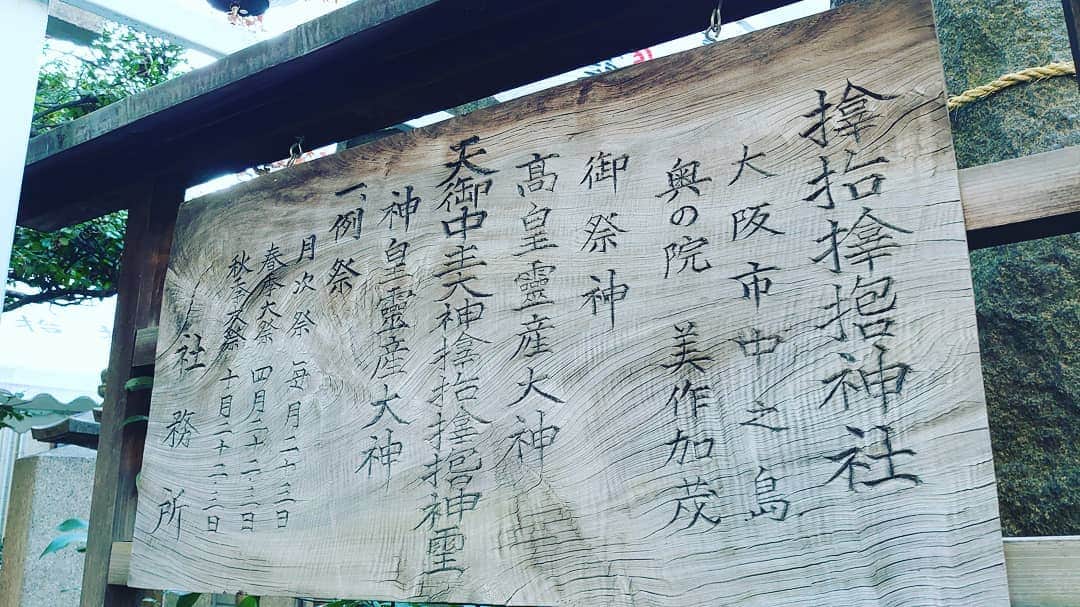 𪮷抬𪮷𪮇神社
大阪市中之島
奥の院 美作加茂
御祭神
髙皇靈産大神
天御中主大神𪮷抬𪮷𪮇神
神皇靈産大神
一、例祭
月次祭 毎月二十三日
春季大祭 四月二十二、三日
秋季大祭 十月二十二、三日
社務所